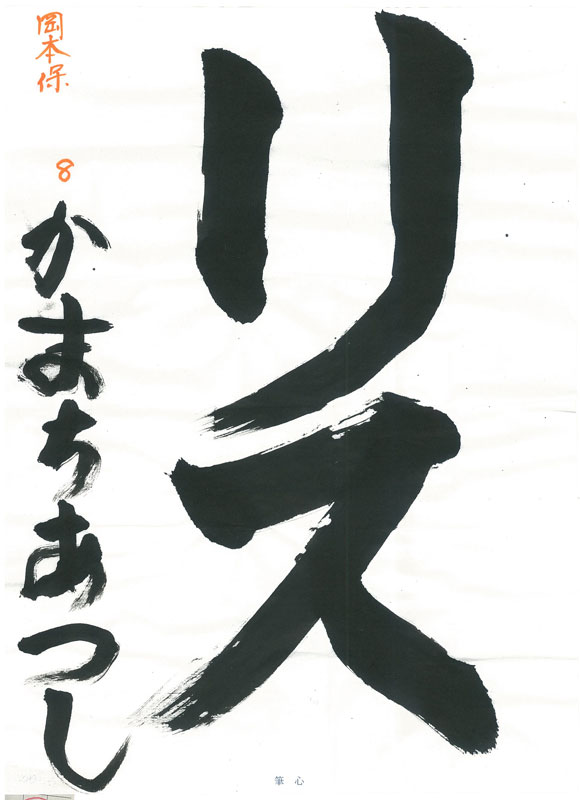 リス
岡本保
8
かまちあつし
筆心